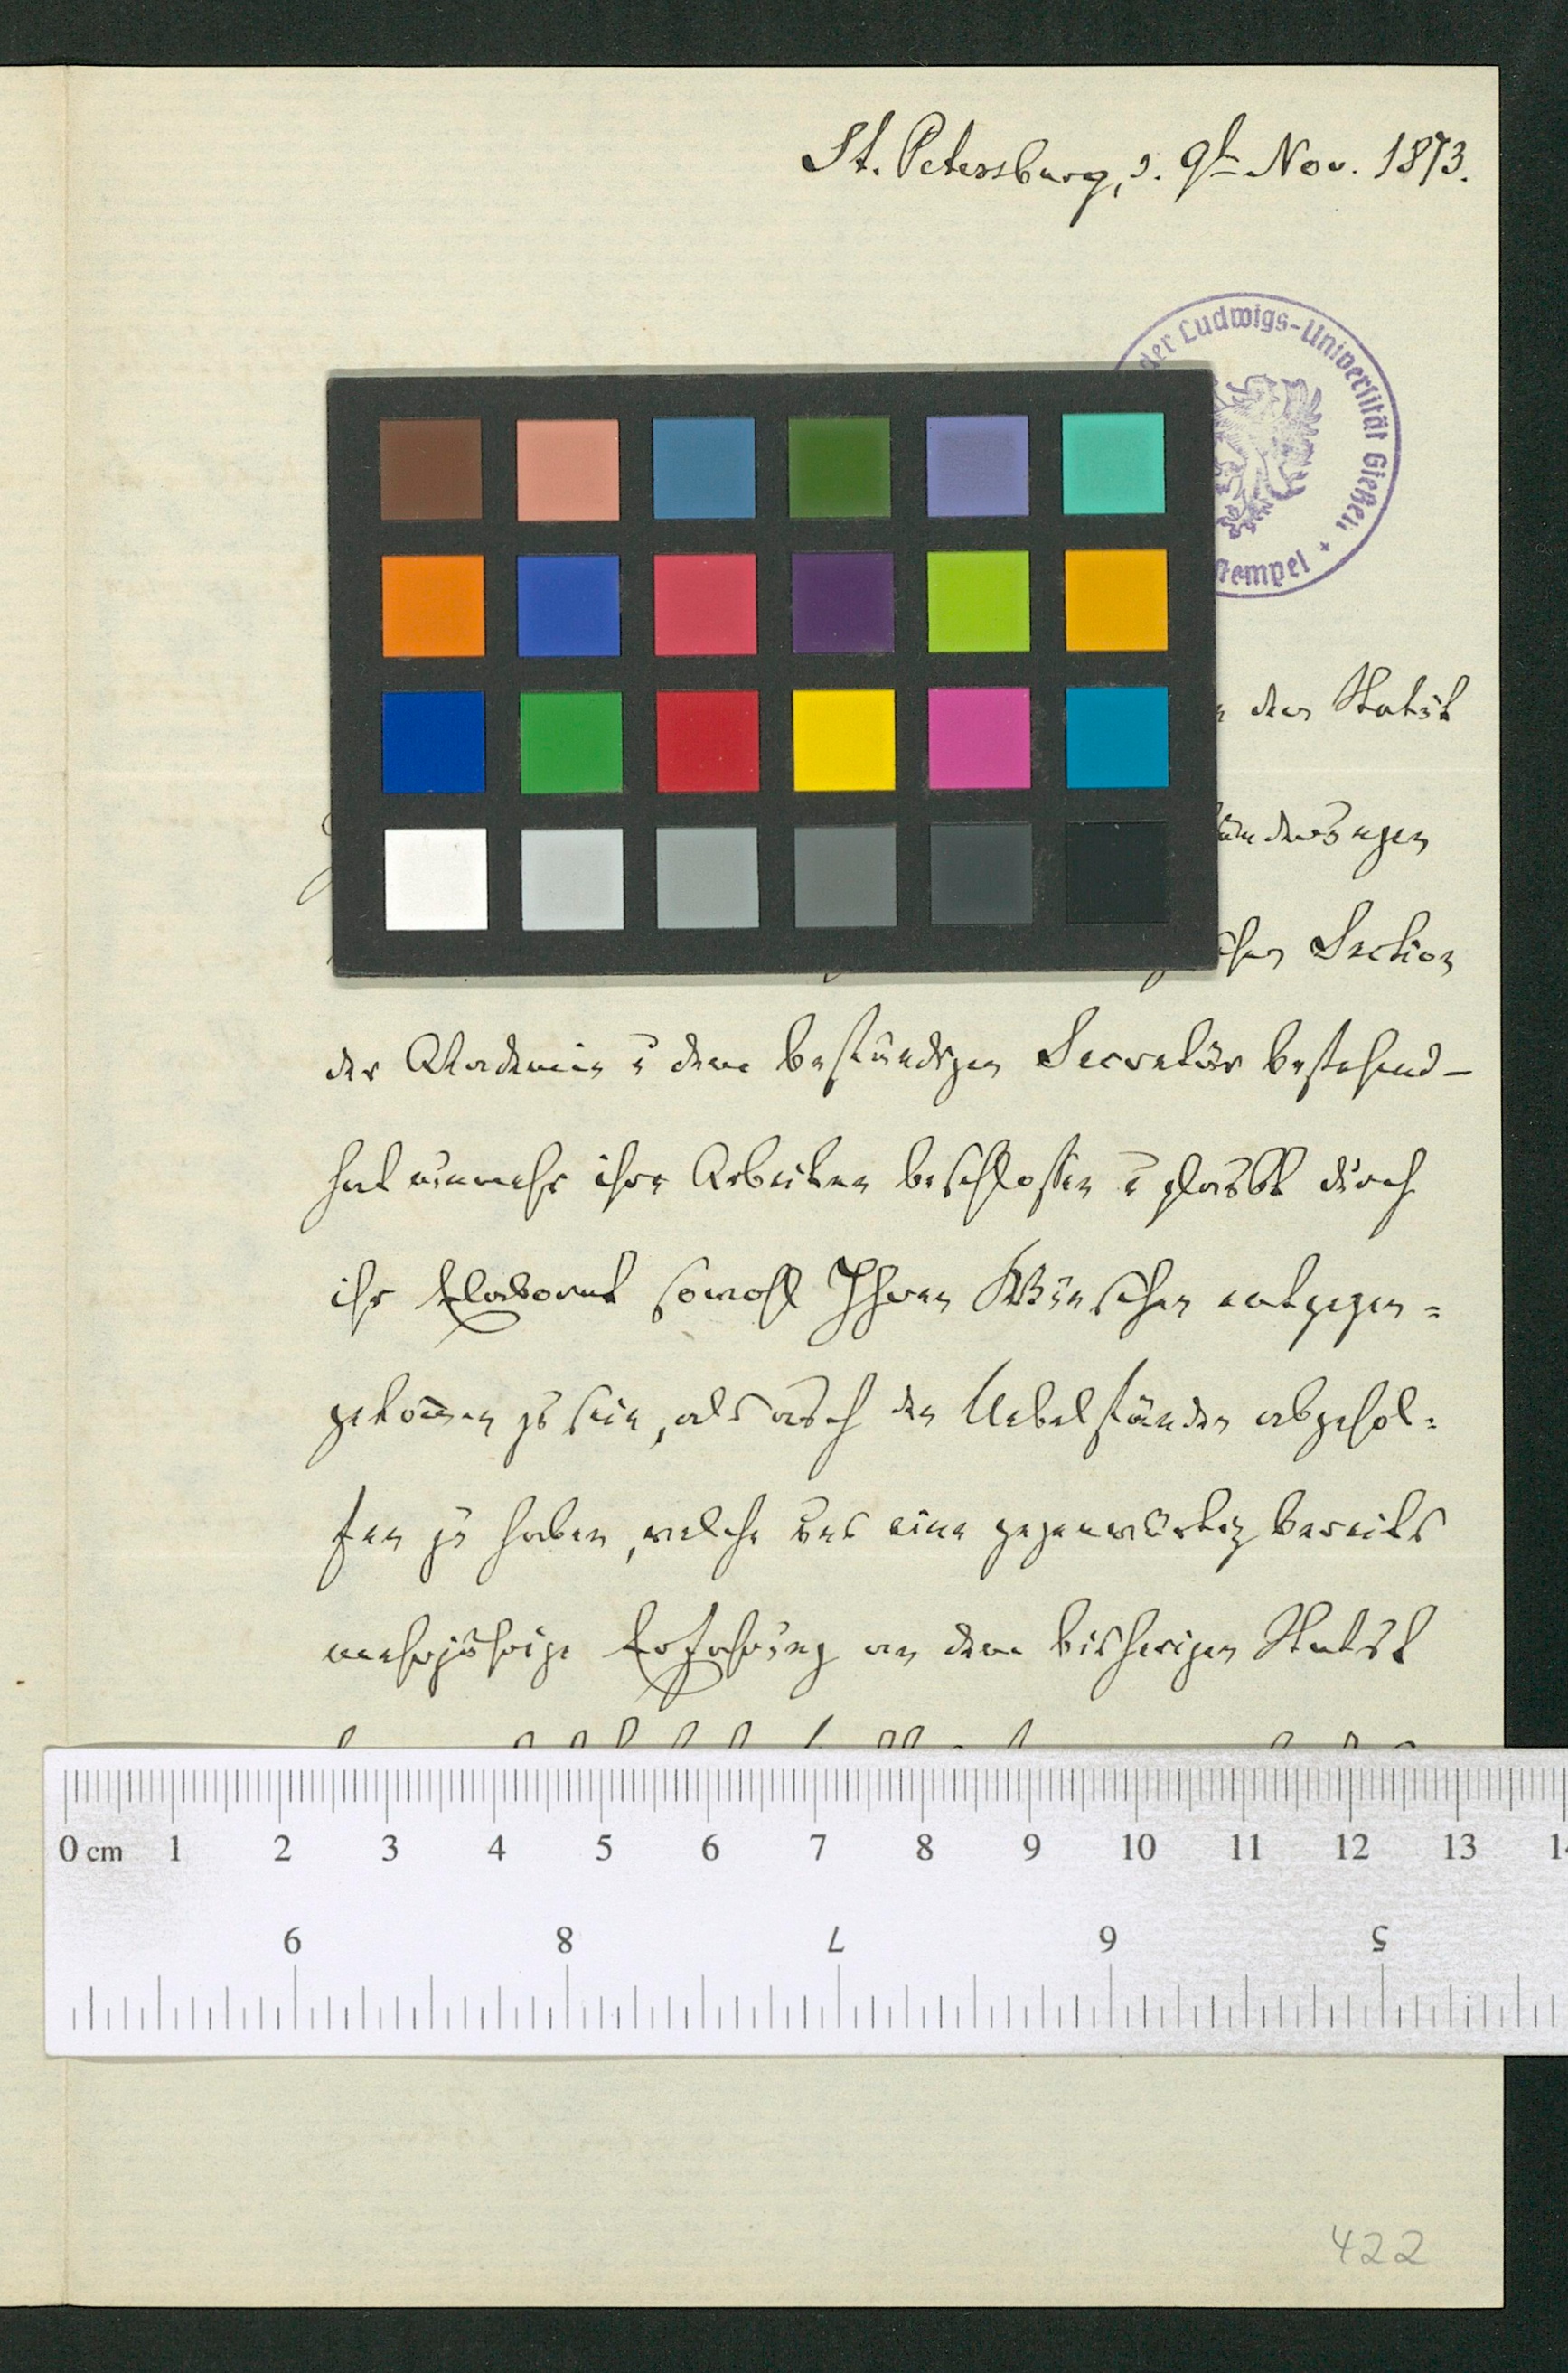 St. Petersburg, d. 9t Nov. 1873.
der Ludwigs-Universität Gießen +
stempel
das Statut
änderungen
schen Section
der Akademie u dem beständigen Secretär bestehend –
hat nunmehr ihre Arbeiten beschlossen u glaubt durch
ihr Elaborat sowohl Ihren Wünschen entgegen=
gekommen zu sein, als auch den Uebelständen abgehol=
fen zu haben, welche uns eine gegenwärtig bereits
mehrjährige Erfahrung an dem bisherigen Statut
0 cm 1 2 3 4 5 6 7 8 9 10 11 12 13
9 8 7 6 5
422